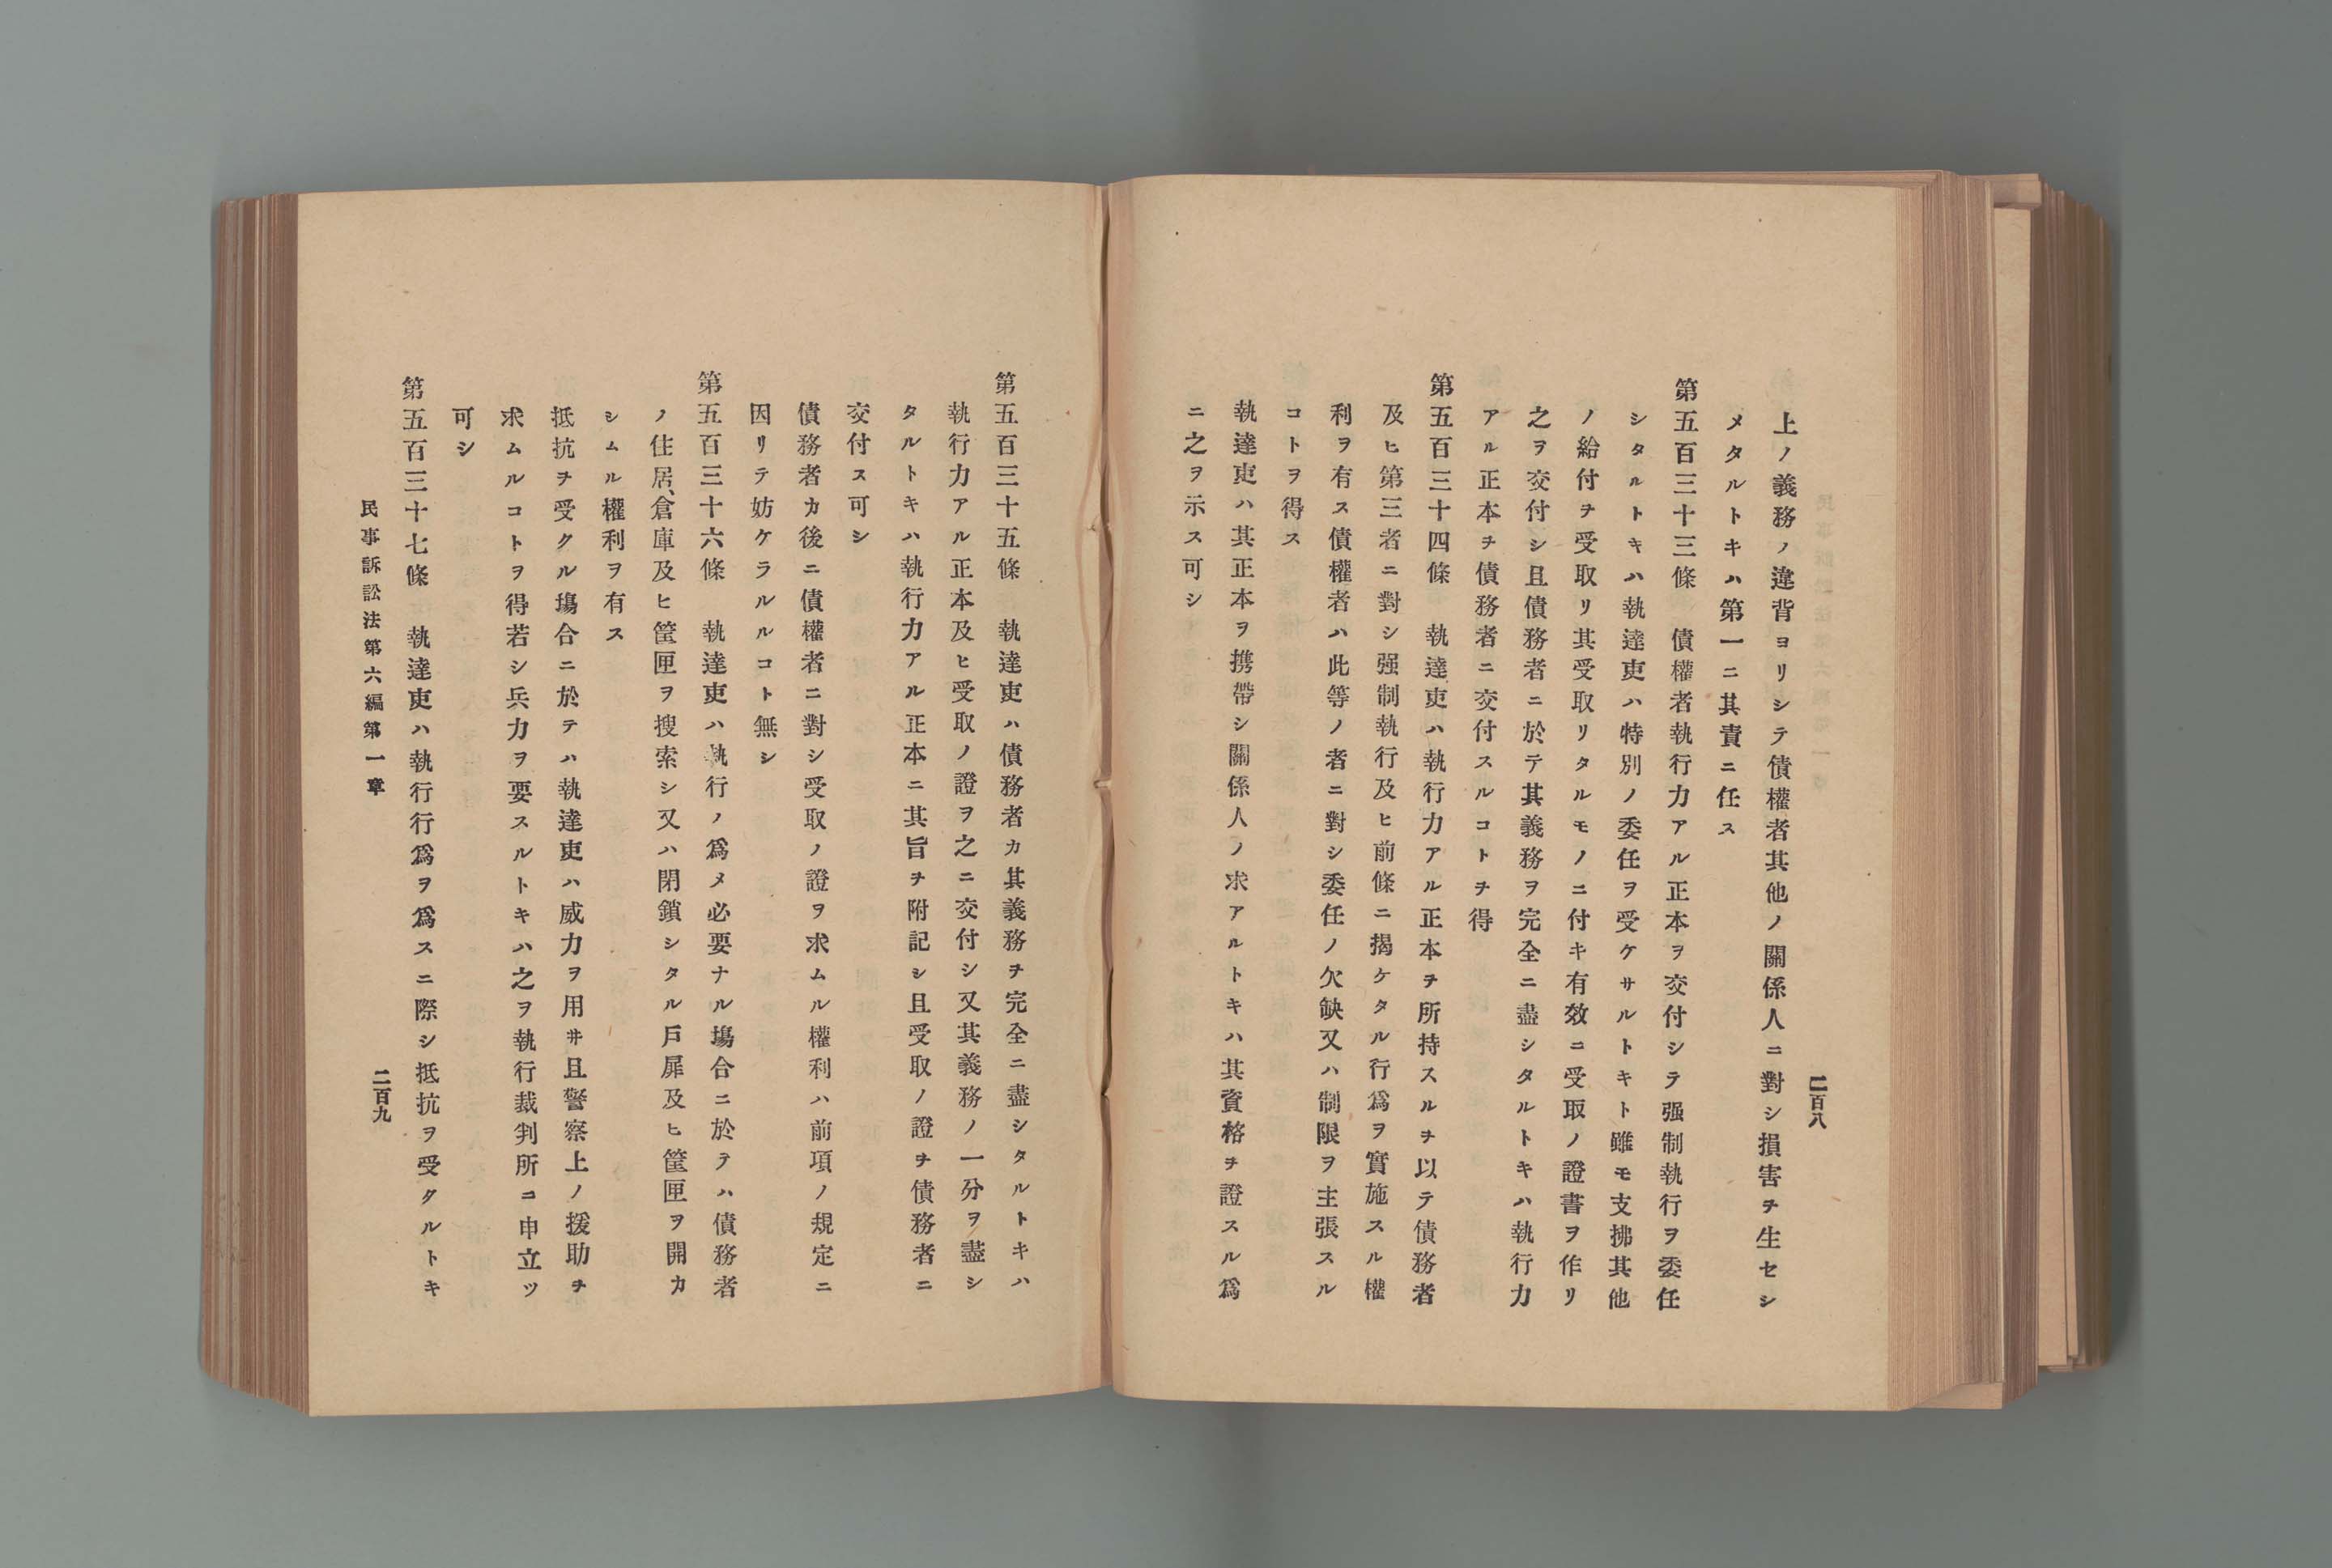 二百八
上ノ義務ノ違背ヨリシテ債權者其他ノ關係人ニ對シ損害ヲ生セシ
メタルトキハ第一ニ其責ニ任ス
第五百三十三條　債權者執行力アル正本ヲ交付シテ强制執行ヲ委任
シタルトキハ執達吏ハ特別ノ委任ヲ受ケサルトキト雖モ支拂其他
ノ給付ヲ受取リ其受取リタルモノニ付キ有效ニ受取ノ證書ヲ作リ
之ヲ交付シ且債務者ニ於テ其義務ヲ完全ニ盡シタルトキハ執行力
アル正本ヲ債務者ニ交付スルコトヲ得
第五百三十四條　執達吏ハ執行力アル正本ヲ所持スルヲ以テ債務者
及ヒ第三者ニ對シ强制執行及ヒ前條ニ揭ケタル行爲ヲ實施スル權
利ヲ有ス債權者ハ此等ノ者ニ對シ委任ノ欠缺又ハ制限ヲ主張スル
コトヲ得ス
執達吏ハ其正本ヲ携帶シ關係人ノ求アルトキハ其資格ヲ證スル爲
ニ之ヲ示ス可シ
第五百三十五條　執達吏ハ債務者カ其義務ヲ完全ニ盡シタルトキハ
執行力アル正本及ヒ受取ノ證ヲ之ニ交付シ又其義務ノ一分ヲ盡シ
タルトキハ執行力アル正本ニ其旨ヲ附記シ且受取ノ證ヲ債務者ニ
交付ス可シ
債務者カ後ニ債權者ニ對シ受取ノ證ヲ求ムル權利ハ前項ノ規定ニ
因リテ妨ケラルルコト無シ
第五百三十六條　執達吏ハ執行ノ爲メ必要ナル塲合ニ於テハ債務者
ノ住居、倉庫及ヒ筐匣ヲ搜索シ又ハ閉鎖シタル戶扉及ヒ筐匣ヲ開カ
シムル權利ヲ有ス
抵抗ヲ受クル塲合ニ於テハ執達吏ハ威力ヲ用井且警察上ノ援助ヲ
求ムルコトヲ得若シ兵力ヲ要スルトキハ之ヲ執行裁判所ニ申立ツ
可シ
第五百三十七條　執達吏ハ執行行爲ヲ爲スニ際シ抵抗ヲ受クルトキ
民事訴訟法第六編第一章
二百九